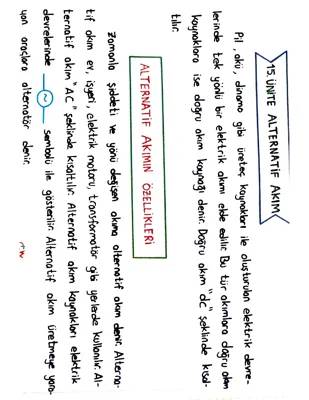 15. ÜNİTE ALTERNATİF AKIM
Pil, akü, dinamo gibi üreteç kaynakları ile oluşturulan elektrik devre-
lerinde tek yönlü bir elektrik akımı elde edilir. Bu tür akımlara doğru akım
kaynaklara ise doğru akım kaynağı denir. Doğru akım "dc" şeklinde kısal-
tılır.
ALTERNATİF AKIMIN ÖZELLİKLERİ
Zamanla şiddeti ve yönü değişen akıma alternatif akım denir. Alterna-
tif akım ev, işyeri, elektrik motoru, transformatör gibi yerlerde kullanılır. Al-
ternatif akım "AC" şeklinde kısaltılır. Alternatif akım kaynakları elektrik
devrelerinde sembolü ile gösterilir. Alternatif akım üretmeye yara-
yan araçlara alternatör denir.